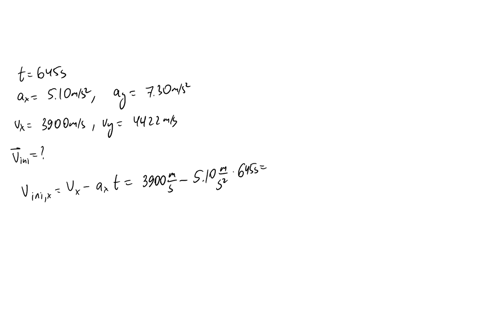 t = 645s
ax = 5.10 m/s², ay = 7.30 m/s²
vx = 3900 m/s, vy = 4422 m/s
V⃗ini = ?
Vini,x = Vx − ax t = 3900 m/s − 5.10 m/s² · 645s =